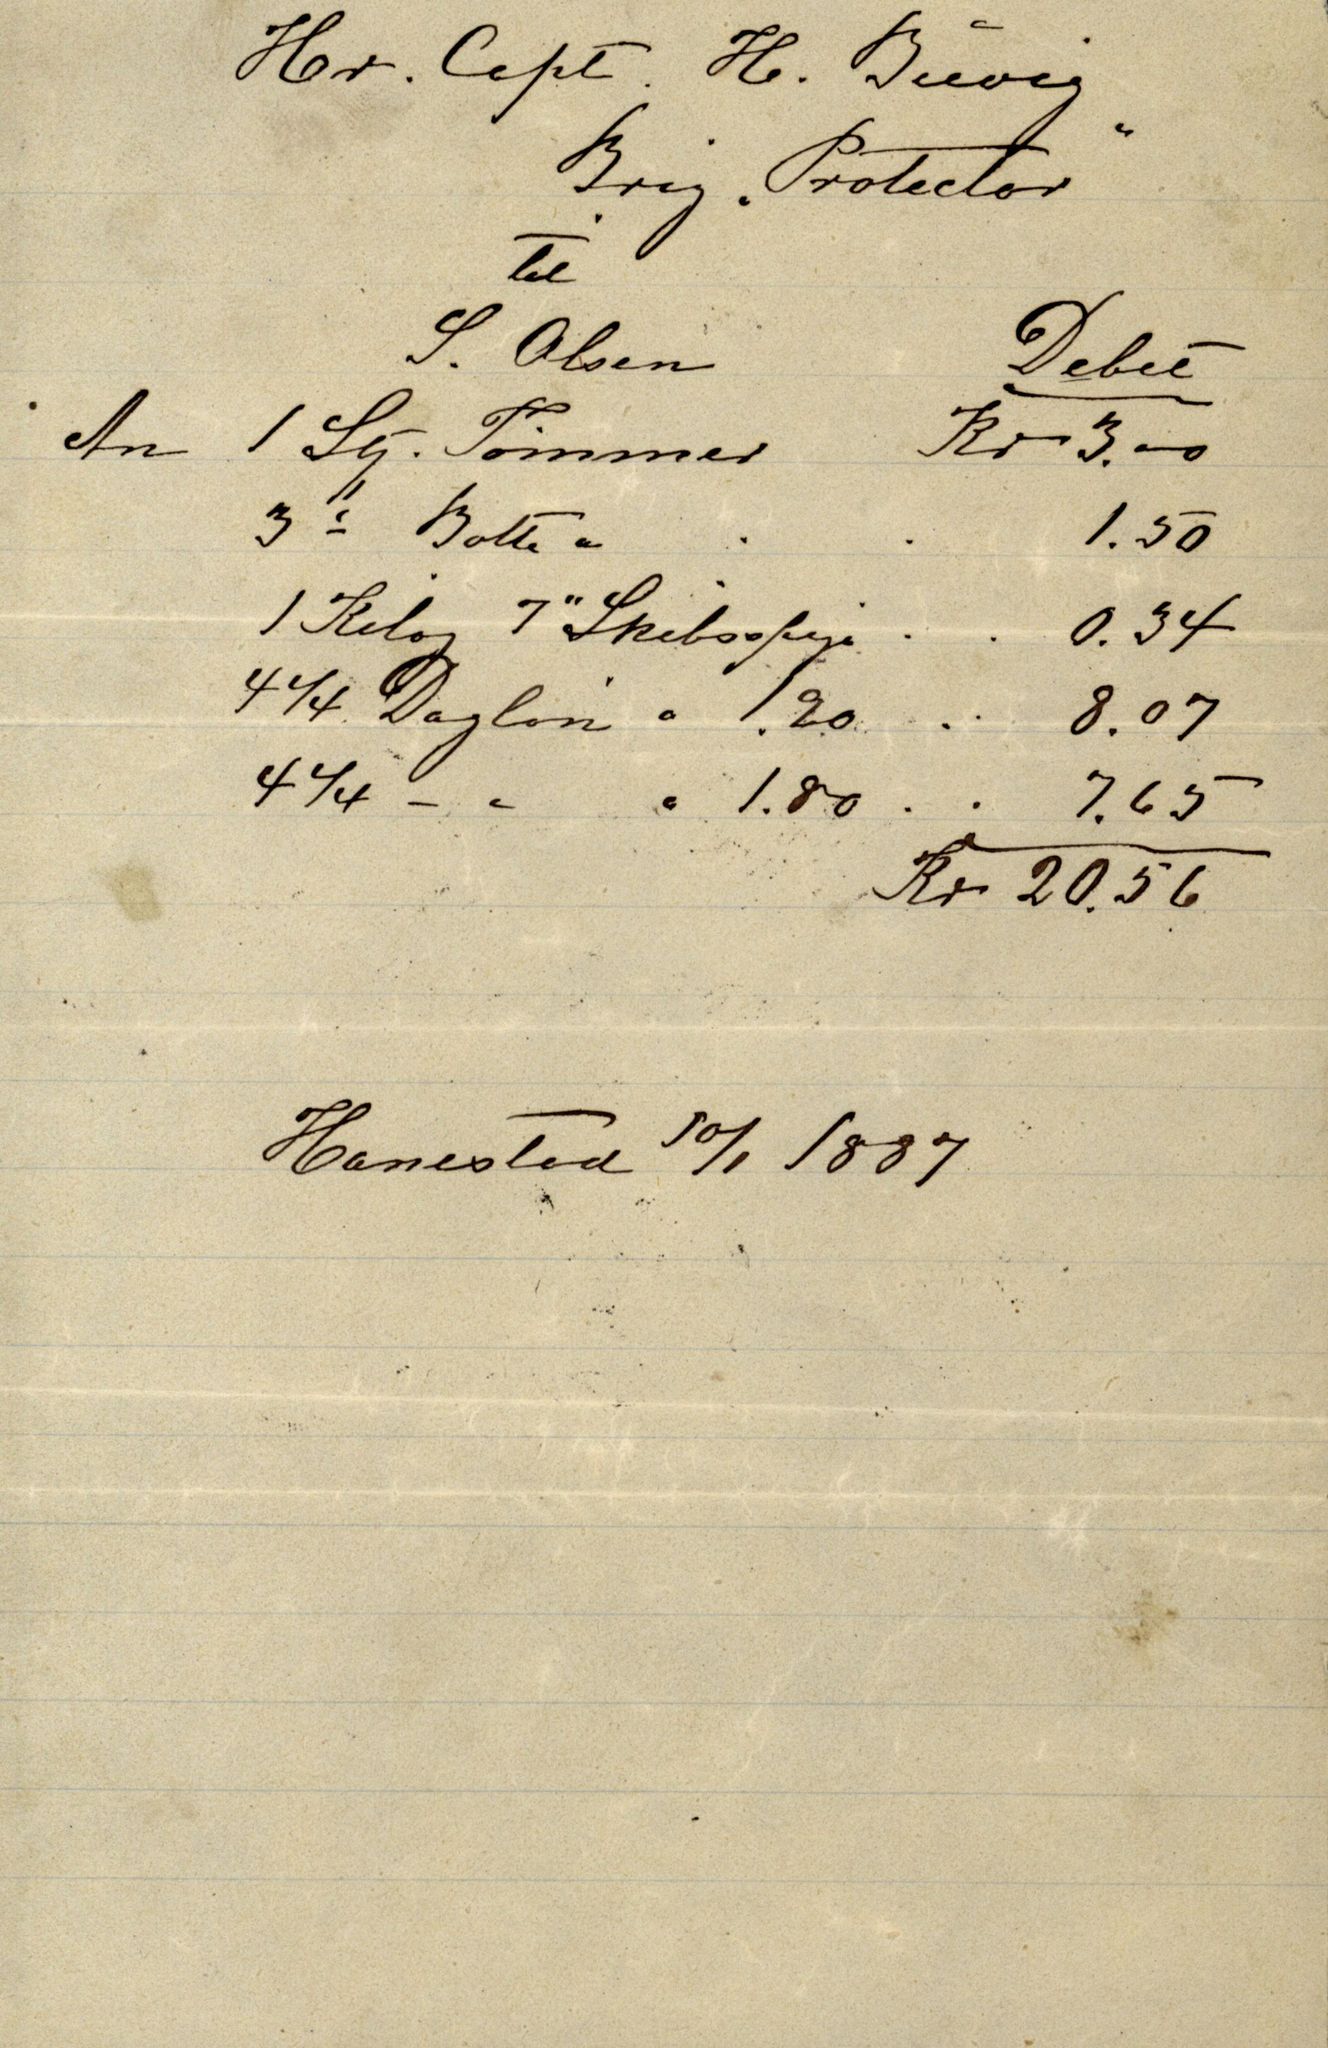 Hr. Capt. H. Buvig
Brig. „Protector"
til
S. Olsen Debet
An 1 St. Tømmer Kr 3.00
3 " Bolte " . . 1.50
1 Kilog 7" Skibsspiger . . 0.34
4 1/4 Dagløn " 1.90 . . 8.07
4 1/4 - " " 1.80 . . 7.65
Kr 20.56
Hanestad 10/1 1887